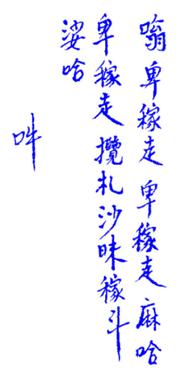 嗡卑稼走卑稼走麻哈
卑稼走攬札沙昧稼斗
娑哈
吽